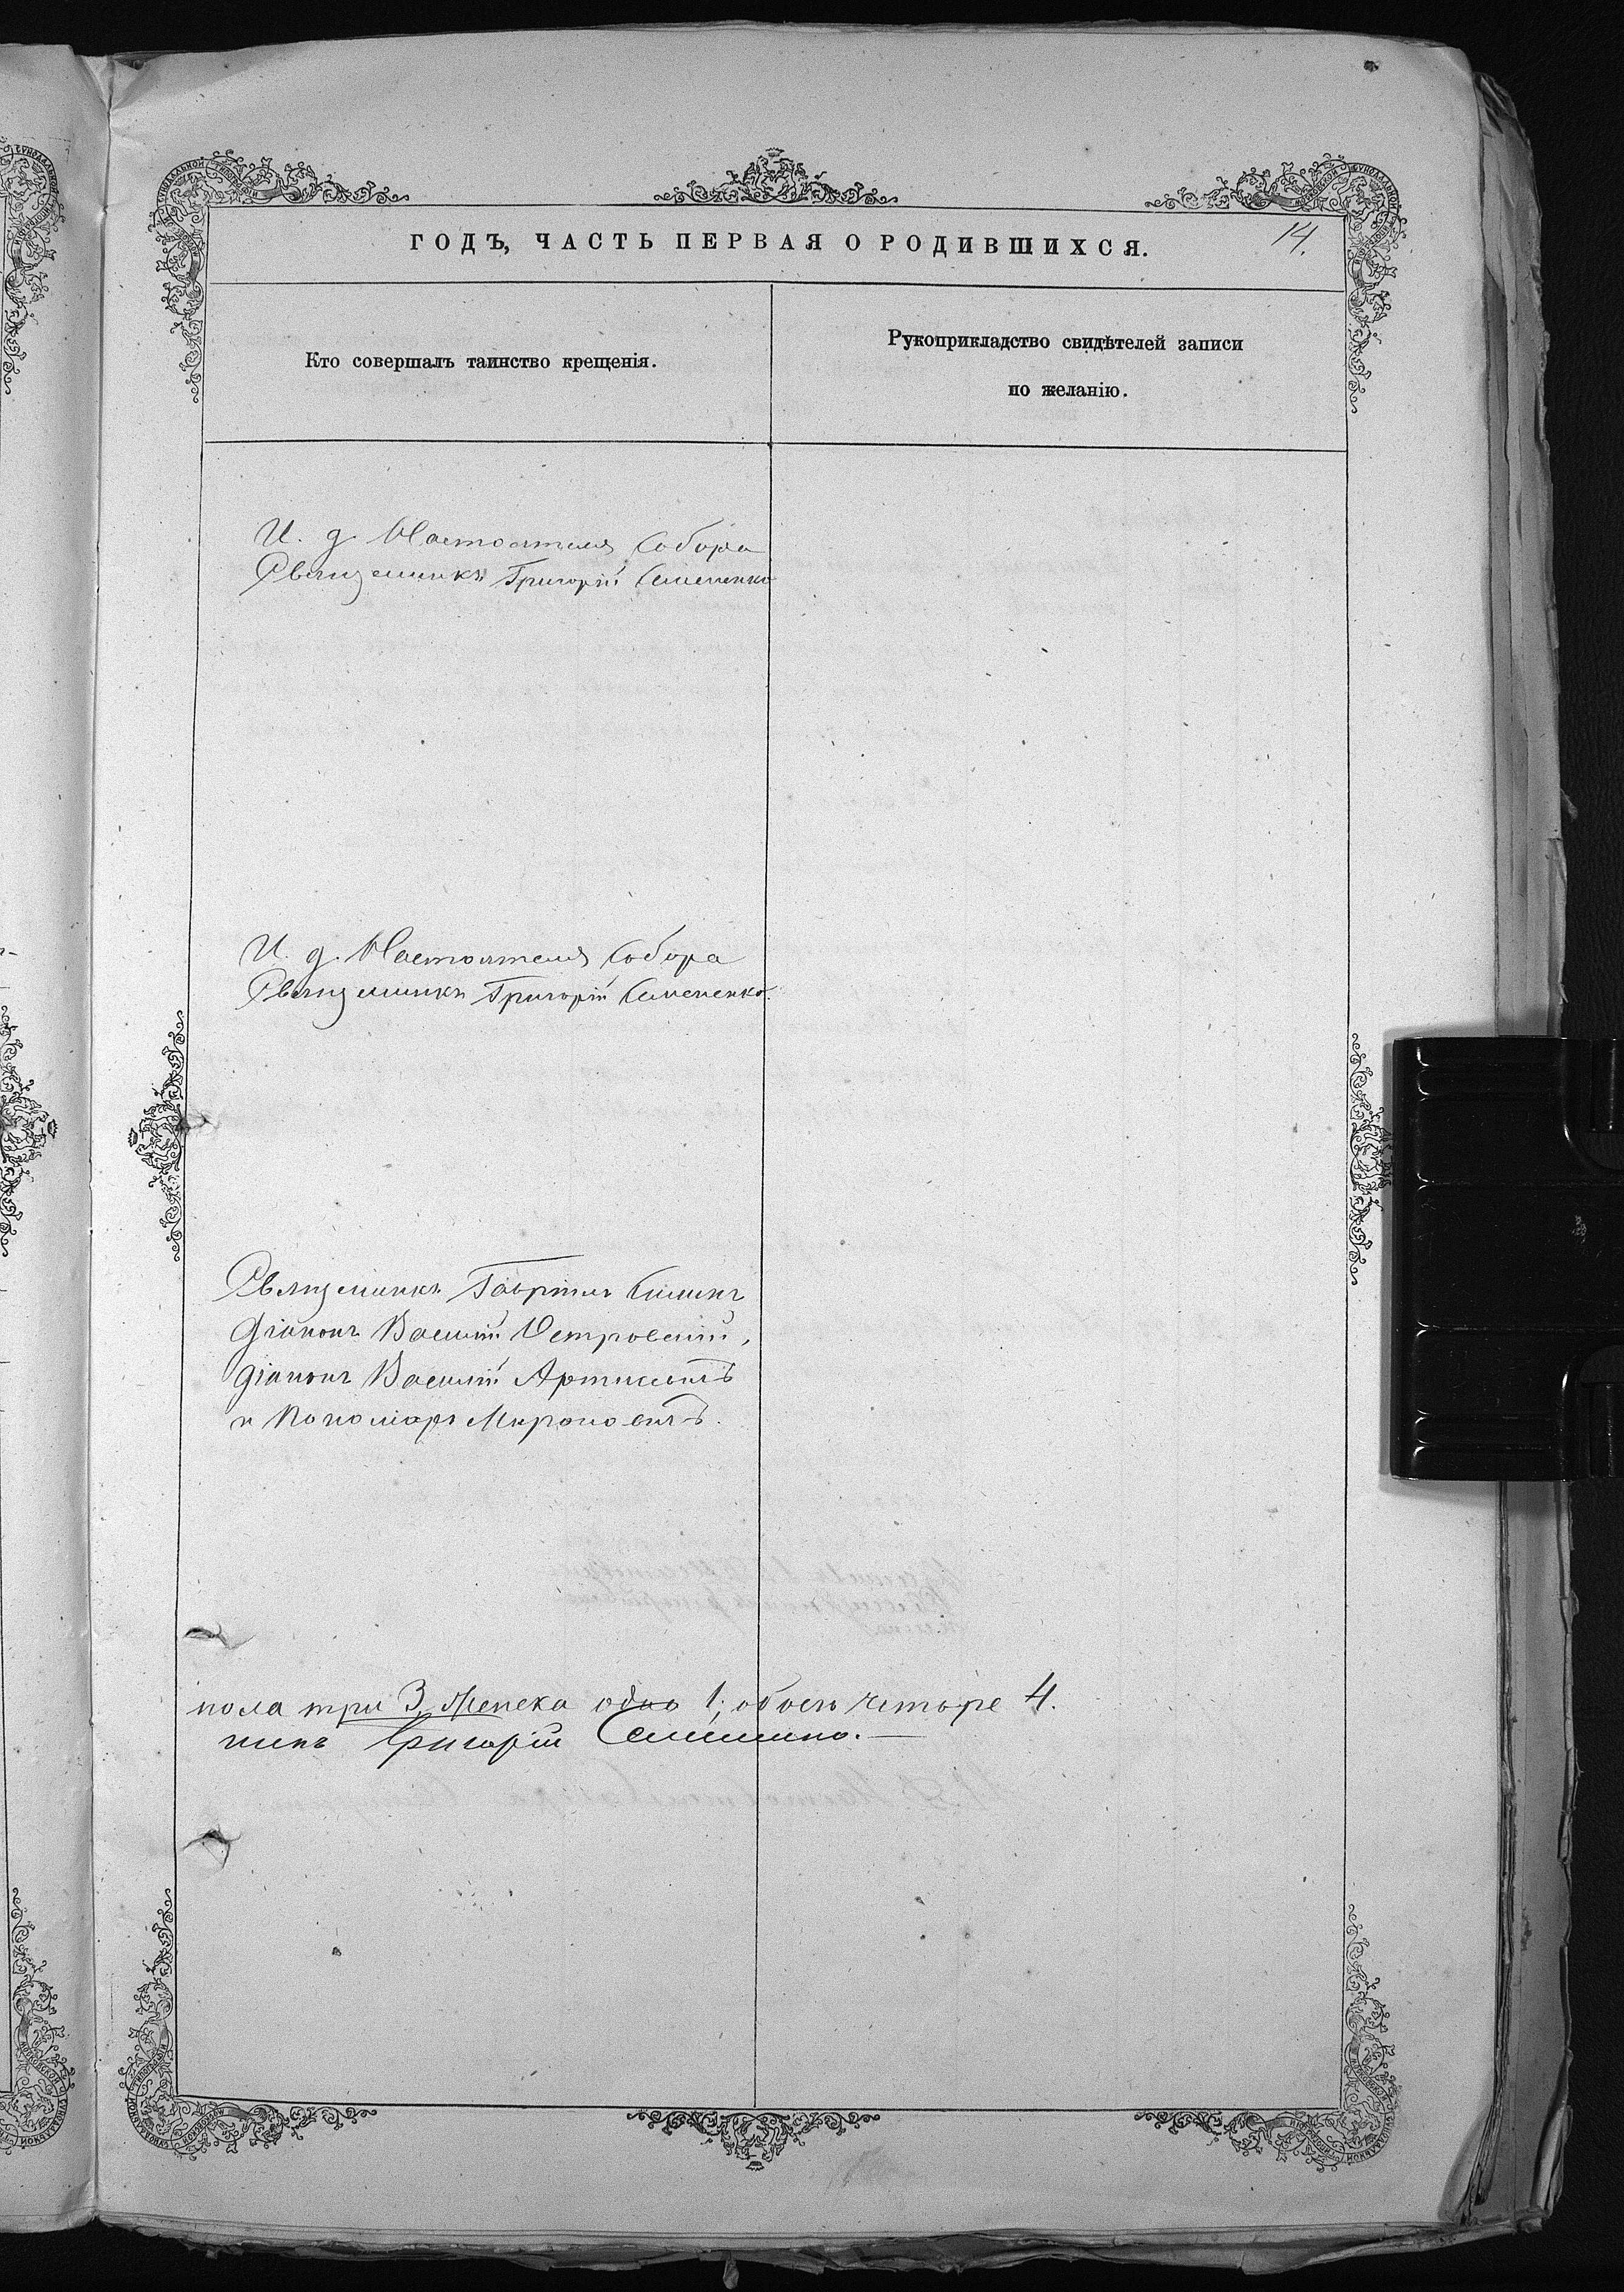 ГОДЪ, ЧАСТЬ ПЕРВАЯ О РОДИВШИХСЯ.
14.
Кто совершалъ таинство крещенія.
Рукоприкладство свидѣтелей записи
по желанію.
И. д. Настоятеля Собора
Священникъ Григорій Семененко
И. д. Настоятеля Собора
Священникъ Григорій Семененко.
Священникъ Гавріилъ
Діаконъ Василій Островскій,
діаконъ Василій
и Пономарь Мироновичъ.
пола три 3, женска одно 1, обоего четыре 4.
никъ Григорій Семененко.